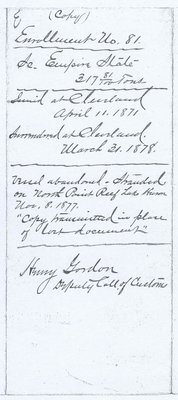 (Copy)
Enrollment No. 81
Sc. Empire State
317 81/100 Tons
Issued at Cleveland
April 11. 1871
Surrendered at Cleveland.
March 21. 1878.
Vessel abandoned. Stranded
on North Point Reef Lake Huron
Nov. 8. 1877.
"Copy transmitted in place
of lost document"
Henry Gordon
Deputy Coll of Customs